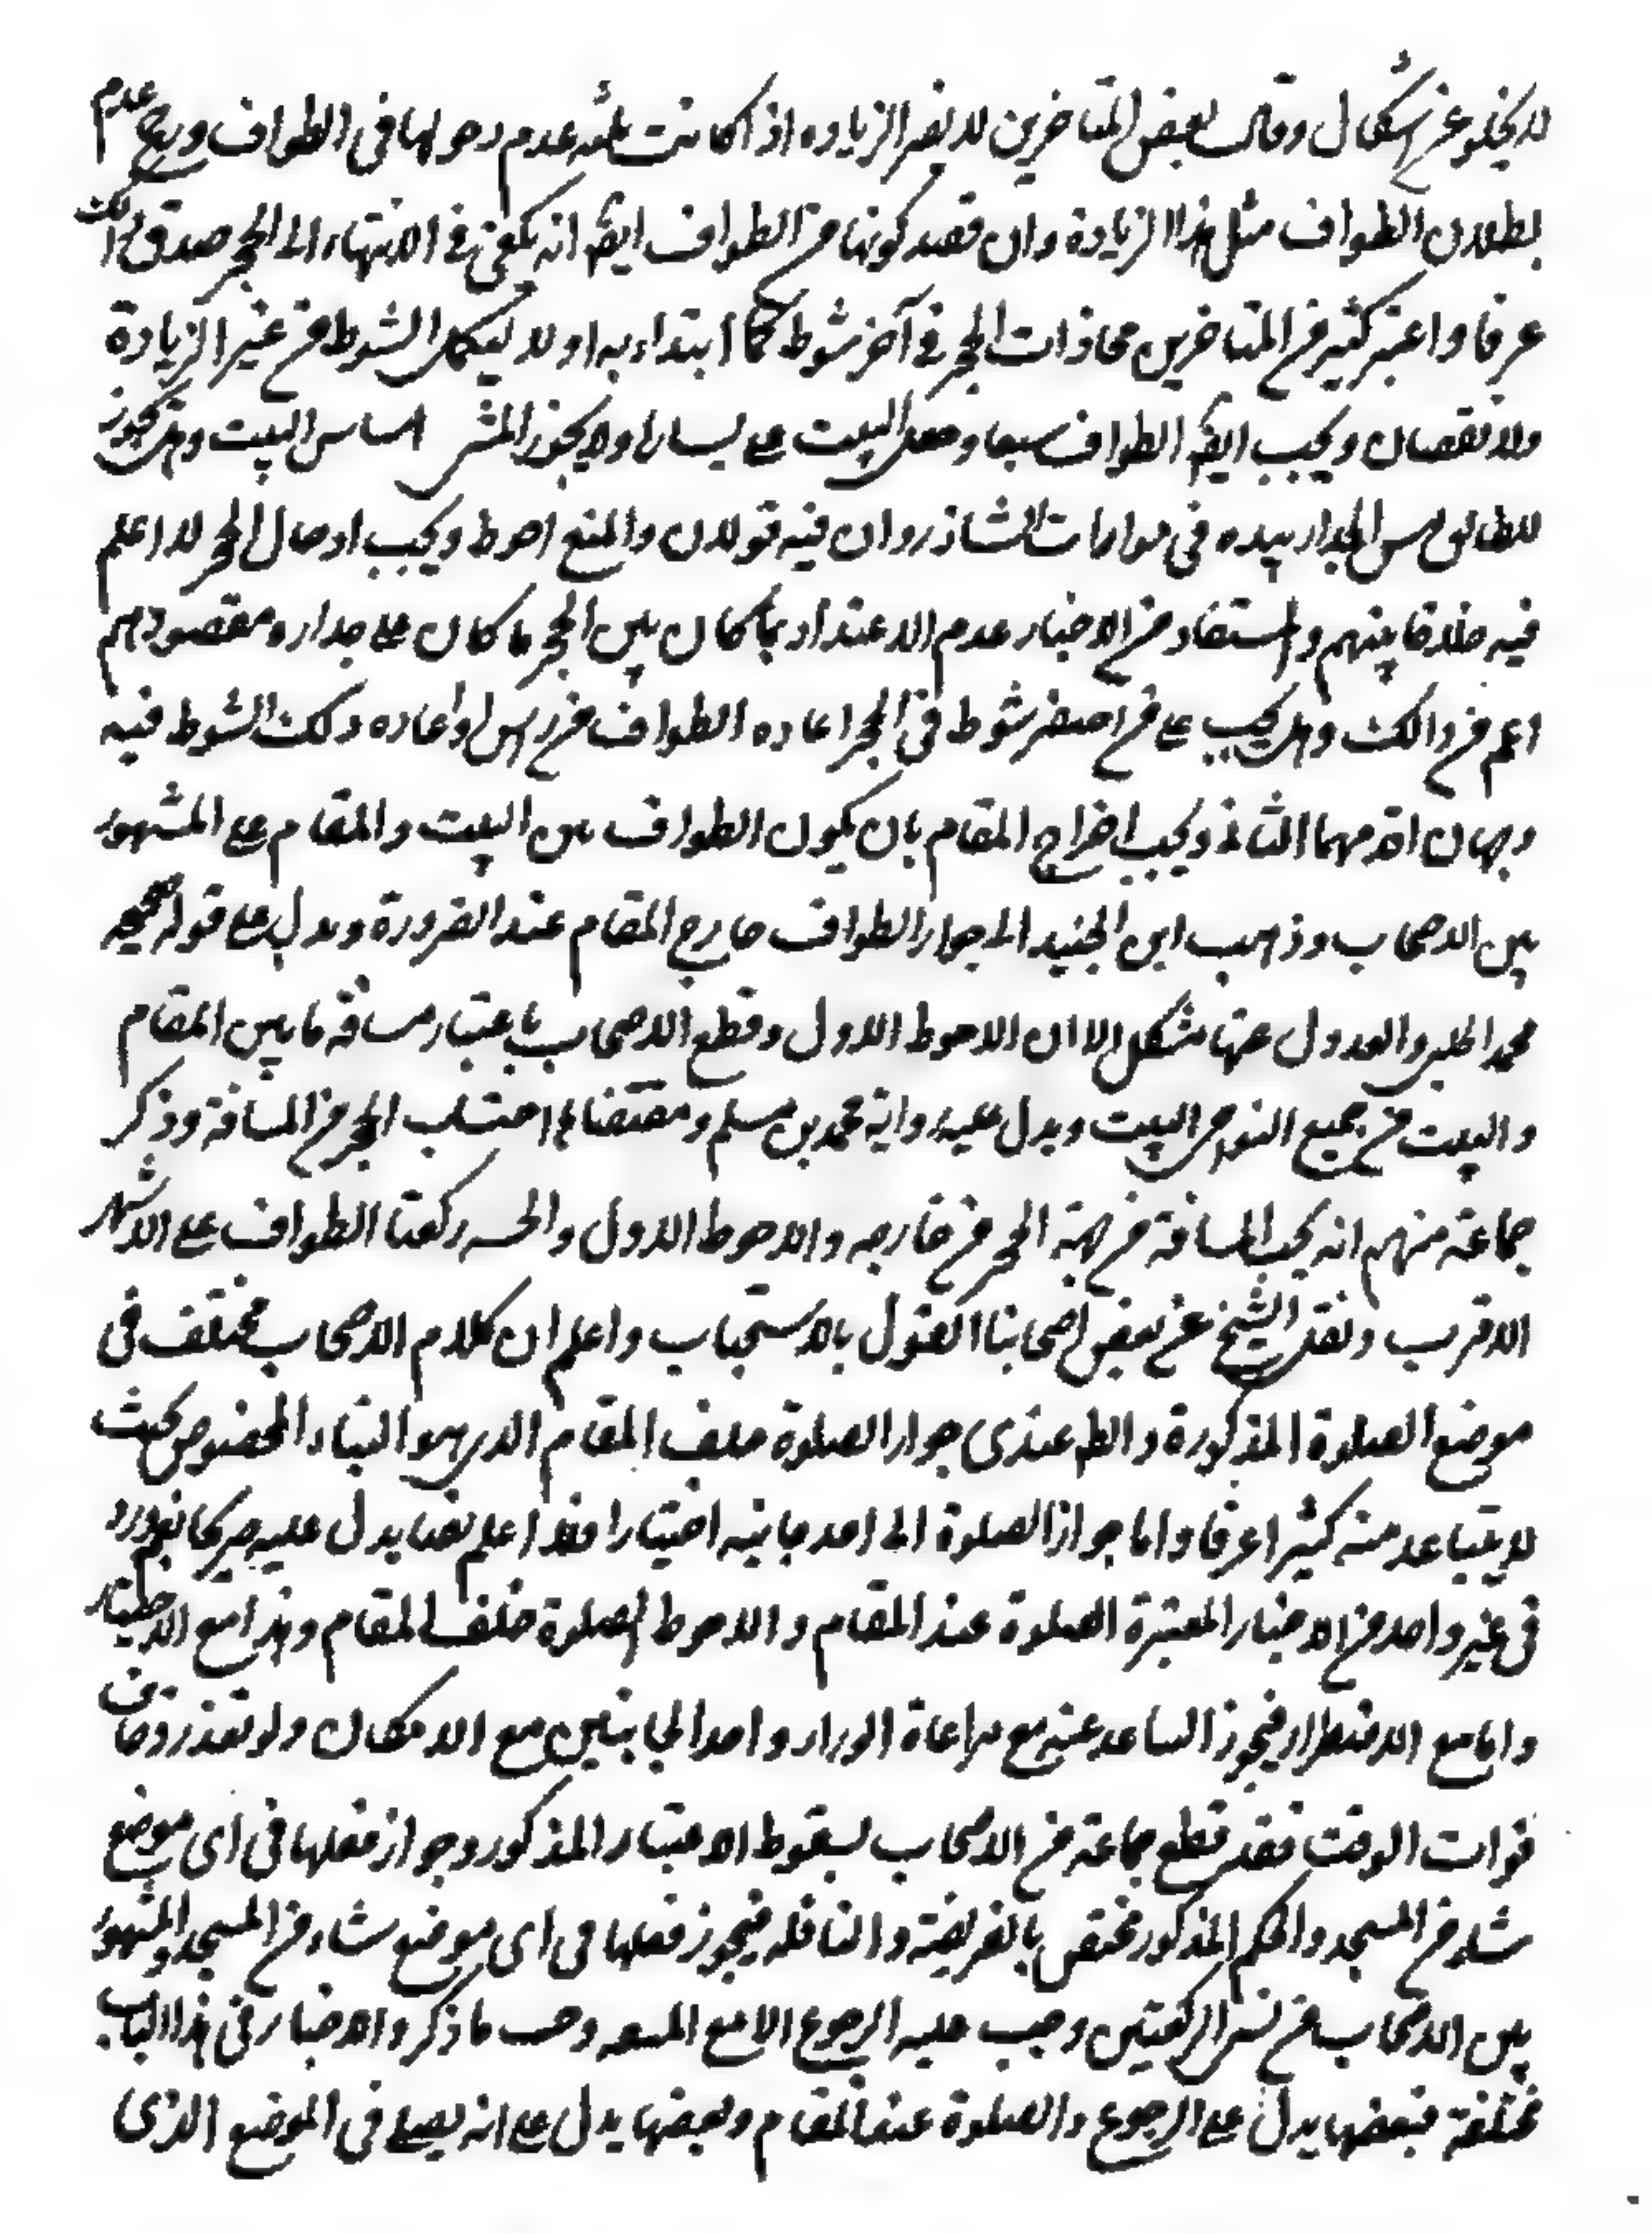 لا يخلو عن اشكال وقال بعض المتاخرين لا يضر الزيادة اذا كانت بنية عدم دخولها فى الطواف ورجح عدم
بطلان الطواف مثل هذا الزيادة وان قصد كونها من الطواف ايضا انه يكفى فى الانتهاء الى الحجر صدق ذالك
عرفا واعتبر كثير من المتاخرين محاذات الحجر فى آخر شوط كما ابتداء به اولا ليكمل الشوط من غير الزيادة
ولا نقصان ويجب ايضا الطواف سبعا وجعل البيت على يساره ولا يجوز المشى اساس البيت وهل يجوز
للطائف مس الجدار بيده فى موازات الشاذروان فيه قولان والمنع احوط ويجب ادخال الحجر لا اعلم
فيه خلافا بينهم والمستفاد من الاخبار عدم الاعتداد بما كان بين الحجر ما كان على جداره ومقصودهم
اعم من ذالك وهل يجب على من اختصر شوط فى الحجر اعاده الطواف من راس او اعاده ذلك الشوط فيه
وجهان اقربهما الثانى ويجب اخراج المقام بان يكون الطواف بين البيت والمقام على المشهور
بين الاصحاب وذهب ابن الجنيد الى جواز الطواف خارج المقام عند الضرورة ويدل على قوله صحيحه
محمد الحلبى والعدول عنها مشكل الا ان الاحوط الاول وقطع الاصحاب باعتبار مسافة ما بين المقام
والبيت من جميع النواحى البيت ويدل عليه رواية محمد بن مسلم ومقتضاها احتساب الحجر من المسافة وذكر
جماعة منهم انه يجب المسافة من جهة الحجر من خارجه والاحوط الاول والحـ ركعتا الطواف على الاشهر
الاقرب ونقل الشيخ عن بعض اصحابنا القول بالاستحباب واعلم ان كلام الاصحاب مختلف فى
موضع الصلوة المذكورة والظ عندى جواز الصلوة خلف المقام الذى هو البناء المخصوص بحيث
لا يتباعد منه كثيرا عرفا واما جواز الصلوة الى احد جانبيه اختيارا فلا اعلم نصا يدل عليه صريحا نعم ورد
فى غير واحد من الاخبار المعتبرة الصلوة عند المقام والاحوط الصلوة خلف المقام وهذا مع الاختيار
واما مع الاضطرار فيجوز التباعد عنه مع مراعاة الوراء واحد الجانبين مع الامكان ولو تعذر وخاف
فوات الوقت فقد قطع جماعة من الاصحاب بسقوط الاعتبار المذكور وجواز فعلها فى اى موضع
شاء من المسجد والحكم المذكور مختص بالفريضة والنافلة فيجوز فعلها فى اى موضع شاء من المسجد والمشهور
بين الاصحاب من نسى الركعتين وجب عليه الرجوع الا مع المشقه وحسب ما ذكر والاخبار فى هذا الباب
مختلفة فبعضها يدل على الرجوع والصلوة عند المقام وبعضها يدل على انه يصلى فى الموضع الذى